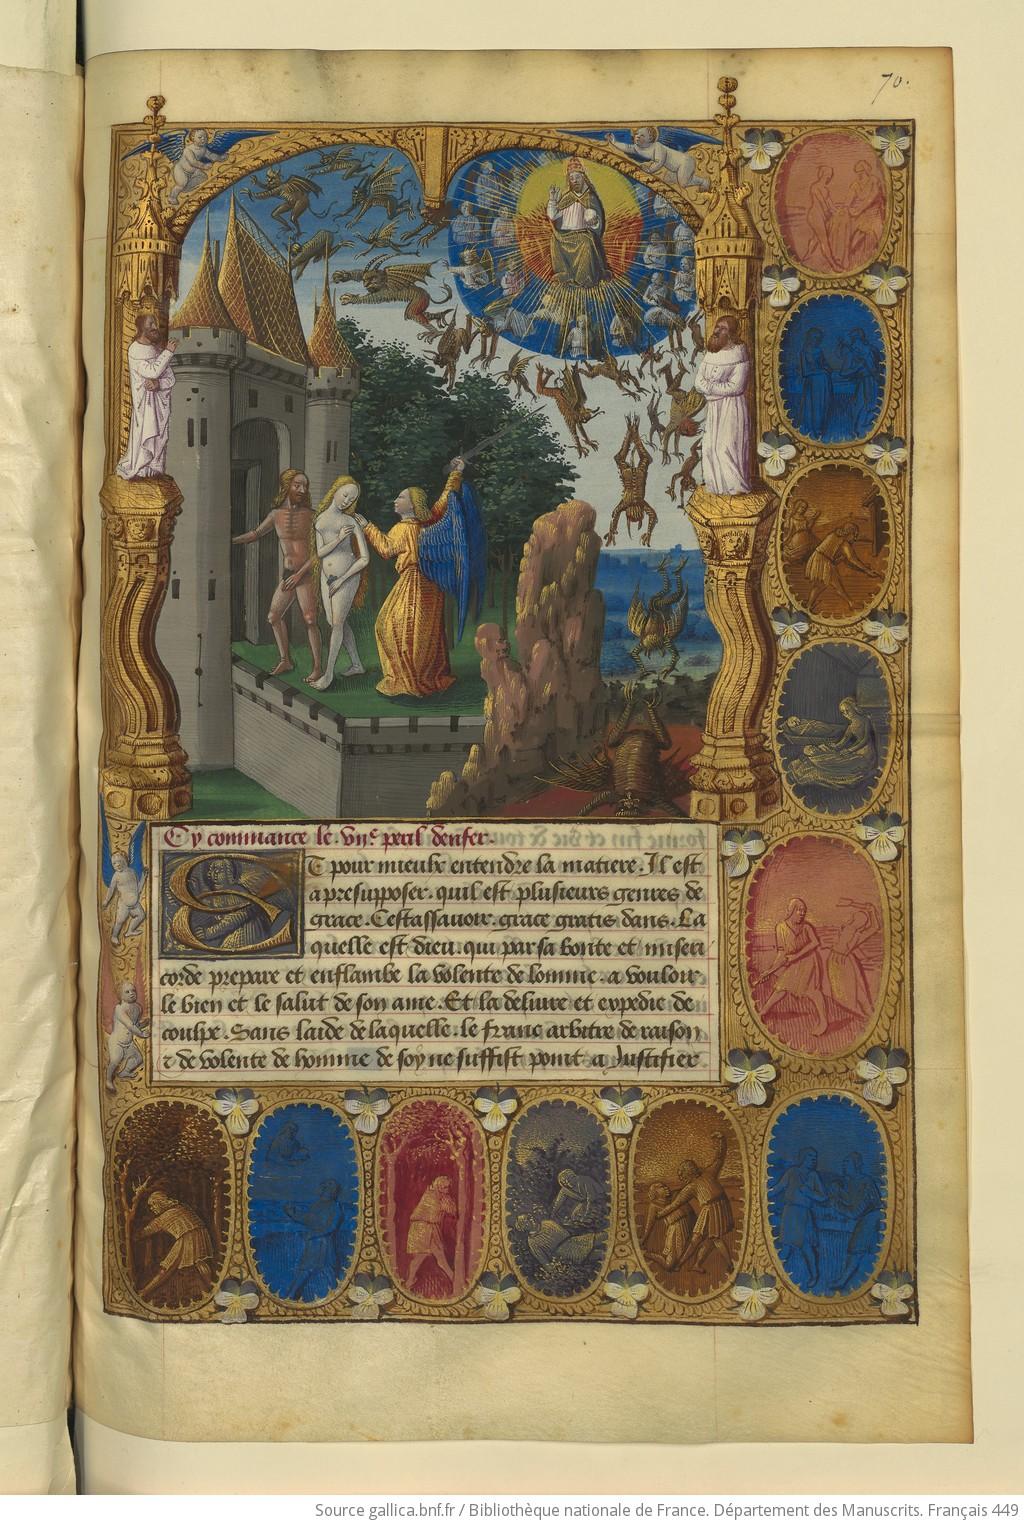 70.
Cy commance le vii.e peril denfer.
ET pour mieulx entendre la matiere. Il est
a presupposer. quil est plusieurs genres de
grace. Cestassauoir. grace gratis dans. La
quelle est dieu. qui par sa bonte et miseri
corde prepare et enflambe la volente de lomme. a vouloir
le bien et le salut de son ame. Et la deliure et expedie de
coulpe. Sans laide de laquelle. le franc arbitre de raison
⁊ de volente de homme de soy ne suffist point a Justifier
Source gallica.bnf.fr / Bibliothèque nationale de France. Département des Manuscrits. Français 449